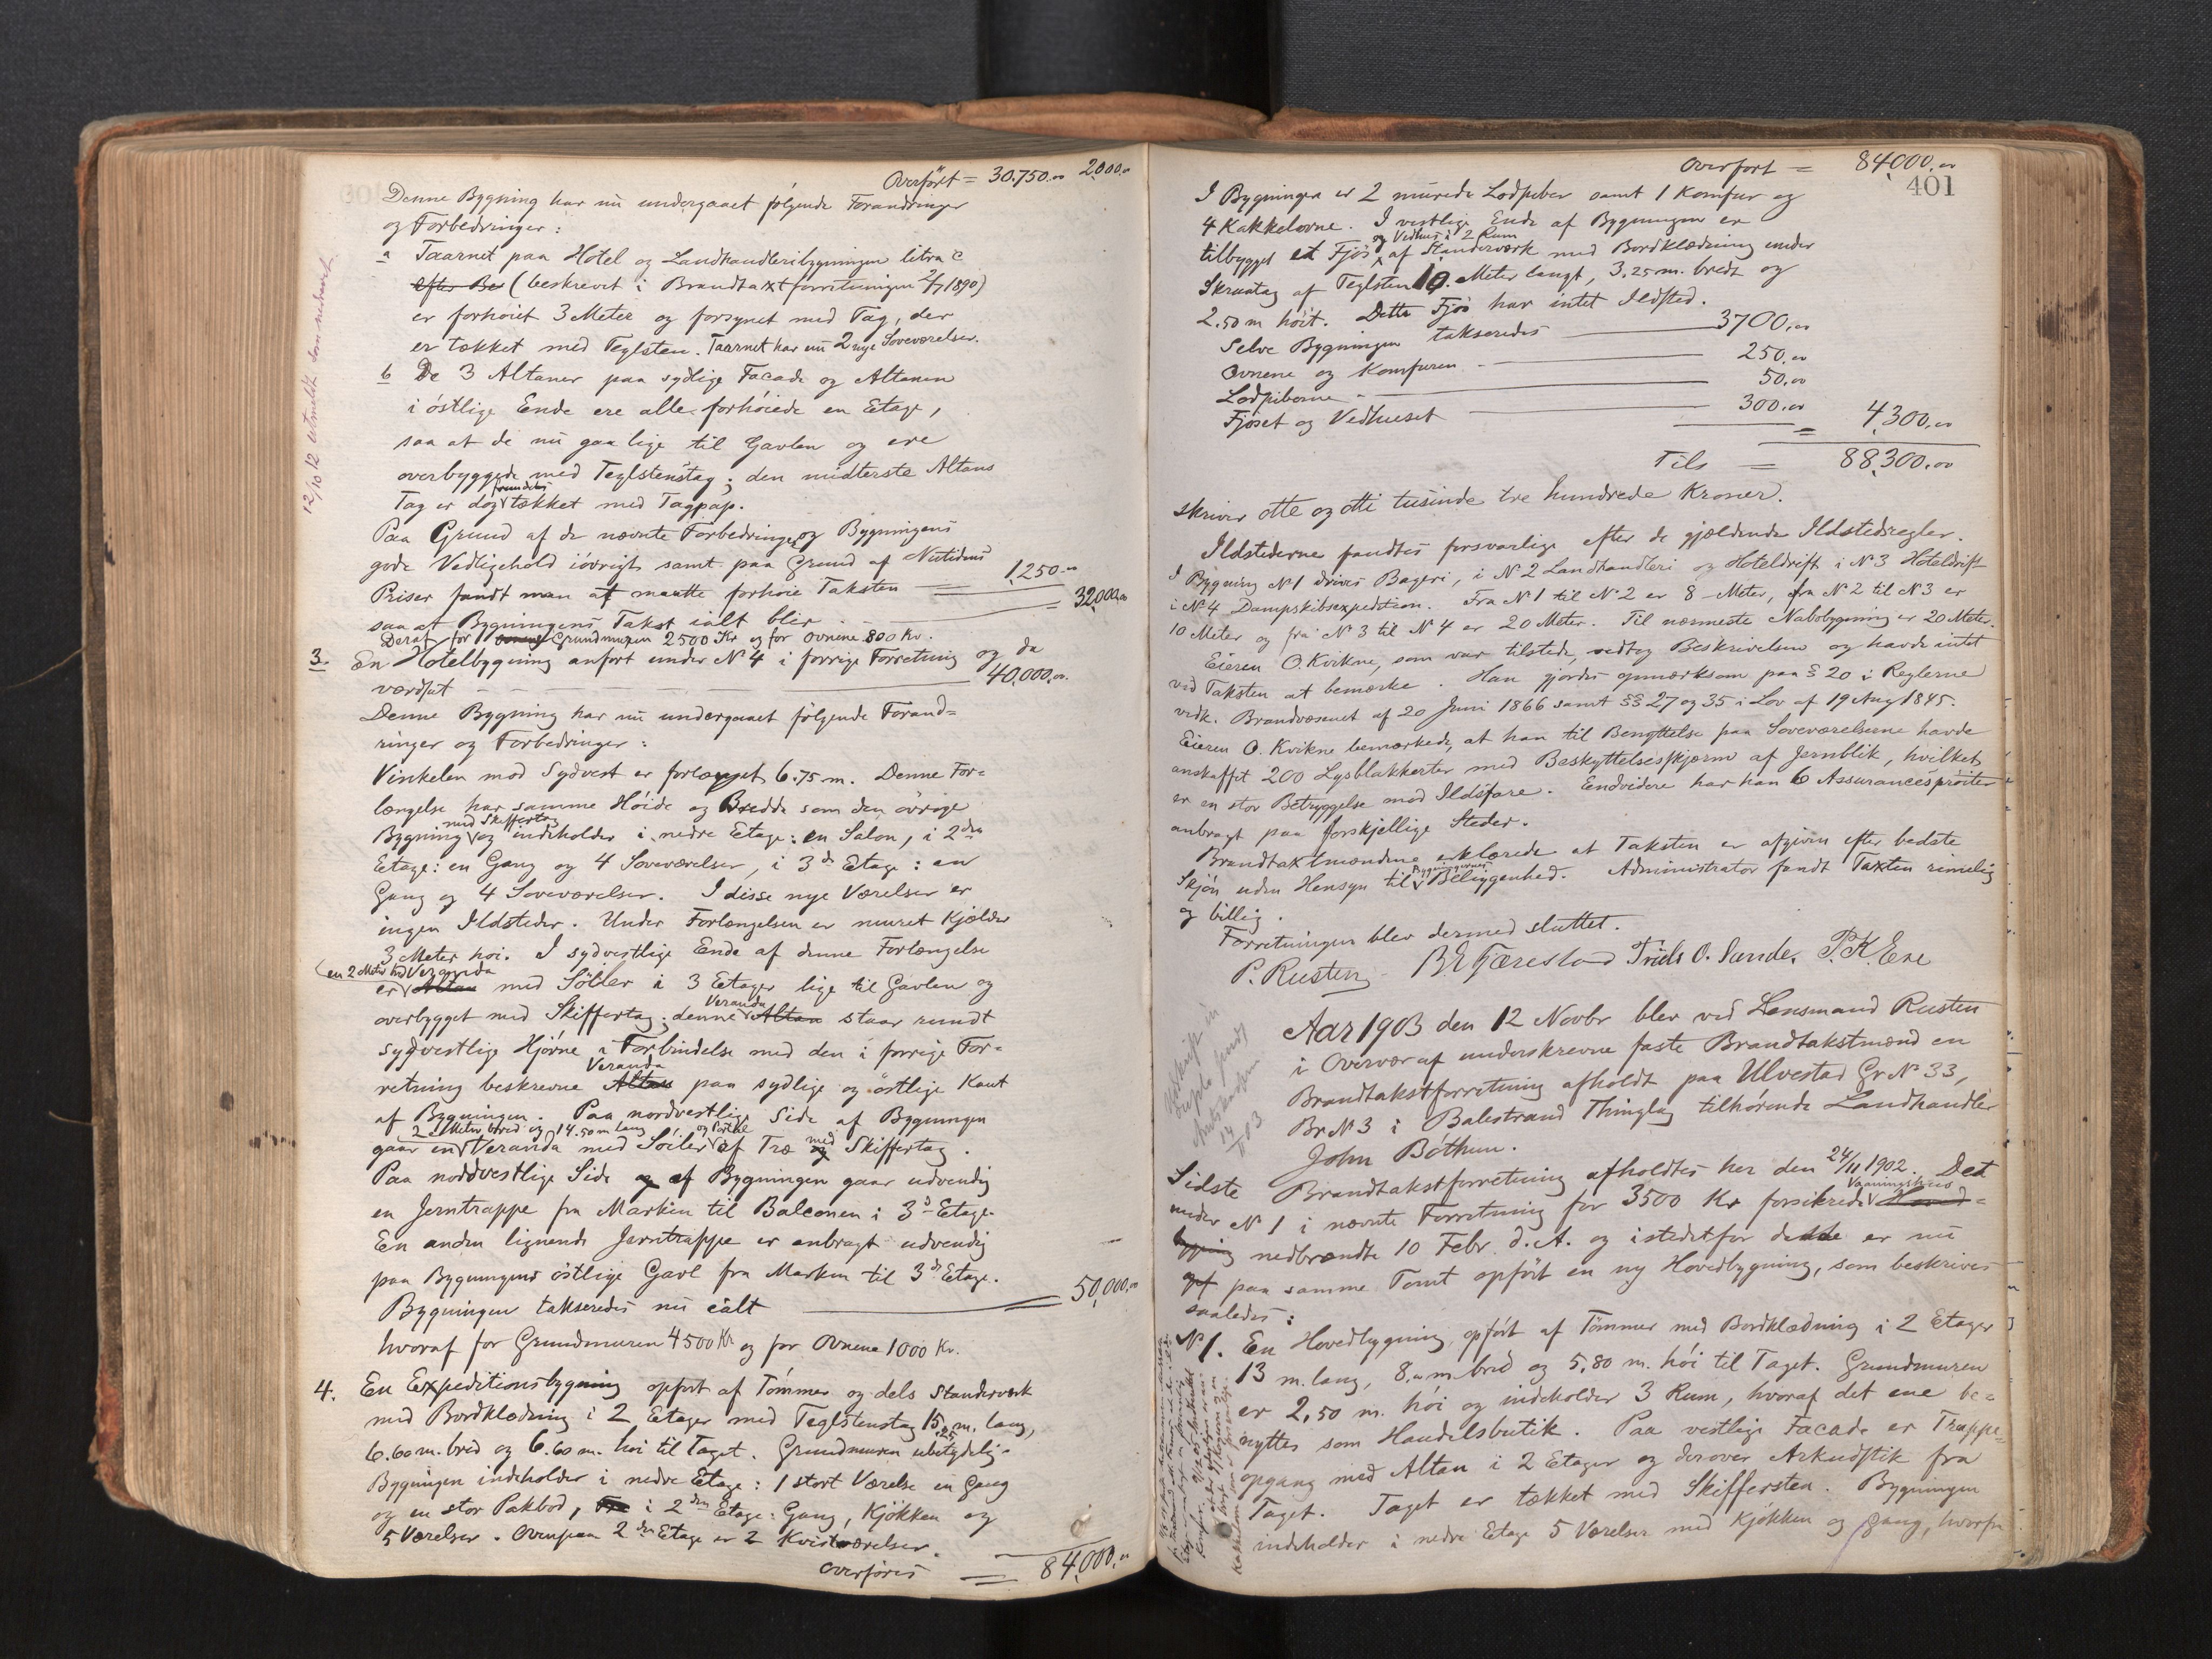 Overført = 30.750.00 2000.00
Denne Bygning har nu undergaaet følgende Forandringer
og Forbedringer:
a Taarnet paa Hotel og Landhandleribygningen litra c
efter Bes (beskrevet i Brandtaxtforretningen 2/7 1890)
er forhøiet 3 Meter og forsynet med Tag, der
er tækket med Teglsten. Taarnet har nu 2 nye Soveværelser.
b De 3 Altaner paa sydlige Facade og Altanen
i østlige Ende ere alle forhøiede en Etage,
saa at de nu gaa lige til Gavlen og ere
overbyggede med Teglstenstag; den midterste Altans
Tag er dog fremdeles tækket med Tagpap.
Paa Grund af de nævnte Forbedringer og Bygningens
gode Vedligehold iøvrigt samt paa Grund af Nutidens
Priser fandt man at maatte forhøie Taksten = 1,250.00
saa at Bygningens Takst ialt blir = 32,000.00
Deraf for Grundmuren 2500 Kr og for Ovnene 800 Kr.
3. En Hotelbygning anført under No 4 i forrige Forretning og da
værdsat 40,000.00
Denne Bygning har nu undergaaet følgende Forand=
ringer og Forbedringer:
Vinkelen mod Sydvest er forlænget 6.75 m. Denne For=
længelse har samme Høide og Bredde som den øvrige
Bygning med Skiffertag og indeholder i nedre Etage: en Salon, i 2den
Etage: en Gang og 4 Soveværelser, i 3de Etage: en
Gang og 4 Soveværelser. I disse nye Værelser er
ingen Ildsteder. Under Forlængelsen er muret Kjelder
3 Meter høi. I sydvestlige Ende af denne Forlængelse
er en 2 Meter bred Veranda Altan med Søiler i 3 Etager lige til Gavlen og
overbygget med Skiffertag; denne Veranda Altan staar rundt
sydvestlige Hjørne i Forbindelse med den i forrige For=
retning beskrevne Veranda Altan paa sydlige og østlige Kant
af Bygningen. Paa nordvestlige Side af Bygningen
gaar en 2 Meter bred og 14.50 m lang Veranda med Søiler og Portal af Træ med og Skiffertag.
Paa nordvestlige Side og af Bygningen gaar udvendig
en Jerntrappe fra Marken til Balconen i 3d Etage.
En anden lignende Jerntrappe er anbragt udvendig
paa Bygningens østlige Gavl fra Marken til 3d Etage.
Bygningen takseredes nu ialt = 50,000.00
hvoraf for Grundmuren 4500 Kr og for Ovnene 1000 Kr.
4. En Expeditionsbygning opført af Tømmer og dels Standerværk
med Bordklædning i 2 Etager med Teglstenstag 15.25 m. lang,
6.60 m. bred og 6.60 m. høi til Taget. Grundmuren ubetydelig.
Bygningen indeholder i nedre Etage: 1 stort Værelse en Gang
og en stor Pakbod, i 2den Etage: Gang, Kjøkken og
5 Værelser. Ovenpaa 2den Etage er 2 Kvistværelser.
Overføres = 84,000.00
12/10 12 utmeldt som nedrevet.
Overført = 84,000.00
401
I Bygningen er 2 murede Lodpiber samt 1 Komfur og
4 Kakkelovne. I vestlige Ende af Bygningen er
tilbygget et Fjøs og Vedhus i 2 Rum af Standerværk med Bordklædning under
Skraatag af Teglsten 10. Meter langt, 3.25 m. bredt og
2.50 m høit. Dette Fjøs har intet Ildsted.
Selve Bygningen takseredes 3700.00
Ovnene og Komfuren 250.00
Lodpiberne 50.00
Fjøset og Vedhuset 300.00 = 4,300.00
Tils = 88,300.00
skriver otte og otti tusinde tre hundrede Kroner.
Ildstederne fandtes forsvarlige efter de gjældende Ildstedsregler.
I Bygning No 1 drives Bageri, i No 2 Landhandleri og Hoteldrift i No 3 Hoteldrift
i No 4 Dampskibsexpedition. Fra No 1 til No 2 er 8 Meter, fra No 2 til No 3 er
10 Meter og fra No 3 til No 4 er 20 Meter. Til nærmeste Nabobygning er 20 Meter.
Eieren O. Kvikne, som var tilstede, vedtog Beskrivelsen og havde intet
ved Taksten at bemærke. Han gjordes opmærksom paa § 20 i Reglerne
vedk. Brandvæsenet af 20 Juni 1866 samt §§ 27 og 35 i Lov af 19 Aug 1845.
Eieren O. Kvikne bemærkede, at han til Benyttelse paa Soveværelserne havde
anskaffet 200 Lysblakkerter med Beskyttelsesskjærm af Jernblik, hvilket
er en stor Betryggelse mod Ildsfare. Endvidere har han 6 Assurancesprøiter
anbragt paa forskjellige Steder.
Brandtaxtmændene erklærede at Taksten er afgiven efter bedste
Skjøn uden Hensyn til Bygningernes Beliggenhed. Administrator fandt Taxten rimelig
og billig.
Forretningen blev dermed sluttet.
P. Rusten Truls O. Sunde.
Aar 1903 den 12 Novbr blev ved Lensmand Rusten
i Overvær af underskrevne faste Brandtakstmænd en
Brandtakstforretning afholdt paa Ulvestad Gr No 33,
Br No 3 i Balestrand Thinglag tilhørende Landhandler
John Bøthun.
Sidste Brandtakstforretning afholdtes her den 24/11 1902. Det
under No 1 i nævnte Forretning for 3500 Kr forsikrede Vaaningshus Hoved=
bygning nedbrændte 10 Febr. d. A. og istedetfor dette er nu
opf paa samme Tomt opført en ny Hovedbygning, som beskrives
saaledes:
No 1. En Hovedbygning, opført af Tømmer med Bordklædning i 2 Etager
13 m. lang, 8.00 m. bred og 5,80 m. høi til Taget. Grundmuren
er 2,50 m. høi og indeholder 3 Rum, hvoraf det ene be=
nyttes som Handelsbutik. Paa vestlige Facade er Trappe=
opgang med Altan i 2 Etager og derover Arkudstik fra
Taget. Taget er tækket med Skiffersten. Bygningen
indeholder i nedre Etage 5 Værelser med Kjøkken og Gang, hvorfra